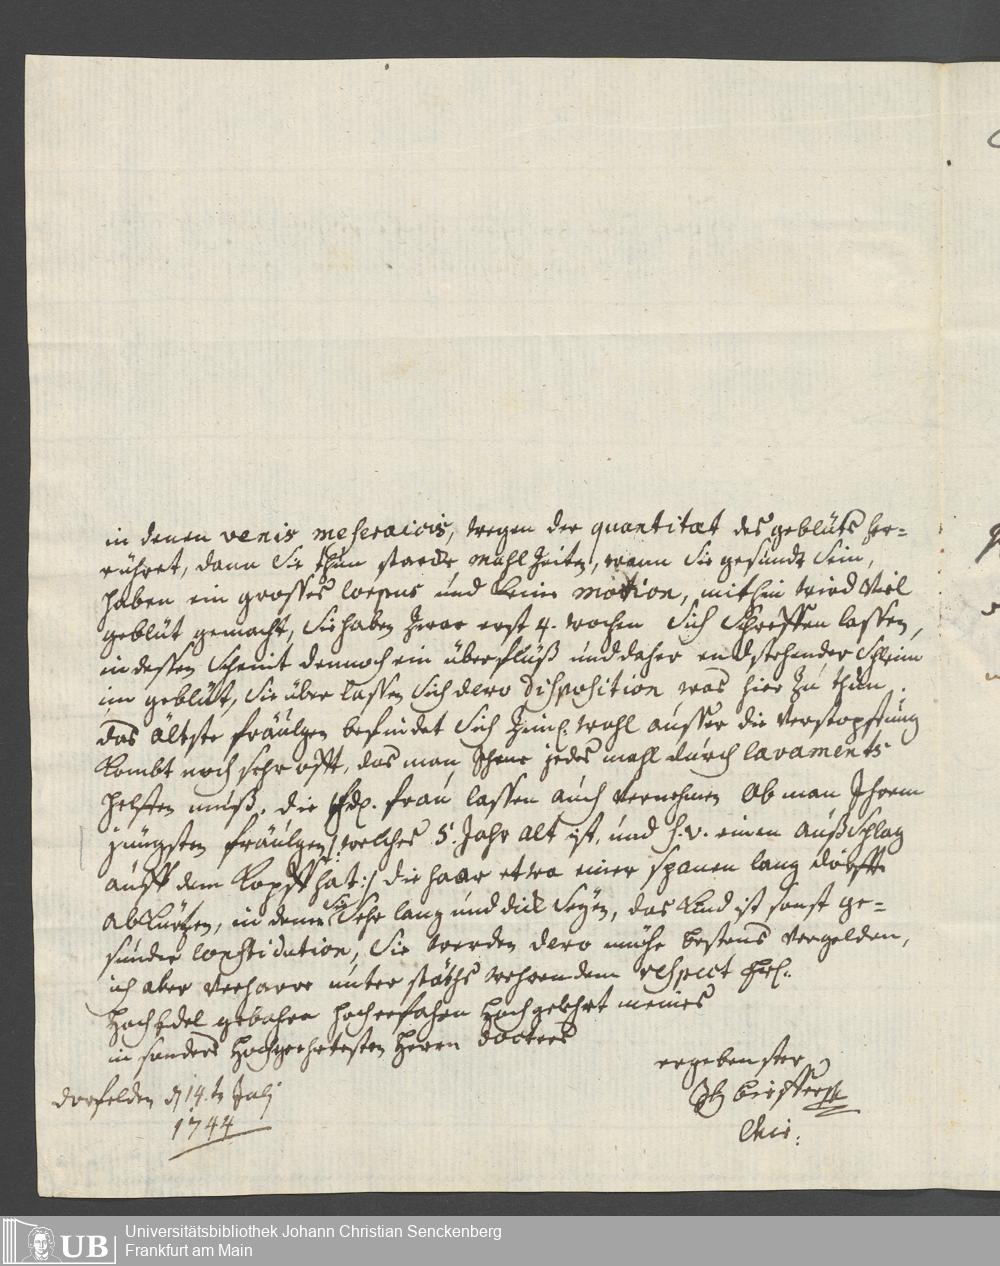 in denen venis meseraicis, wegen der quantitat des geblüts her=
rühret, dann Sie thun starcke Mahlzeiten, wann Sie gesundt Sein,
haben ein grosses corpus und keine motion, mithin wird viel
geblüt gemacht, Sie haben zwar erst 4. wochen Sich Schreffen lassen,
in dessen Scheint dennoch ein überfluß und daher endstehender Schleim
im geblüt, Sie über lassen Sich dero Disposition was hier zu thun.
das älteste fräülgen befindet Sich zimł. wohl ausser die Verstopffung
kombt noch sehr offt, das man jedes mahl durch lavaments
helffen muß. die frau lassen auch vernehmen Ob man Ihrem
jüngsten fräülgen /: welches 5. Jahr alt ist, und h. v. einen außschlag
auff dem Kopff hat :/ die haar etwa einer spanen lang dörffte
abkürtzen, in denen Sie Sehr lang und dick Seyen, das Kind ist sonst ge=
sunder constitution, Sie werden dero mühe bestens vergelden,
ich aber verharre unter stäths wehrendem respect
HochEdel gebohren hocherfahren Hochgelehrt meines
in sonders Hochgeehrtesten Herrn Docters
ergebenster
dorfelden d 14.t Julj
1744
Chir:
Universitätsbibliothek Johann Christian Senckenberg
UB
Frankfurt am Main